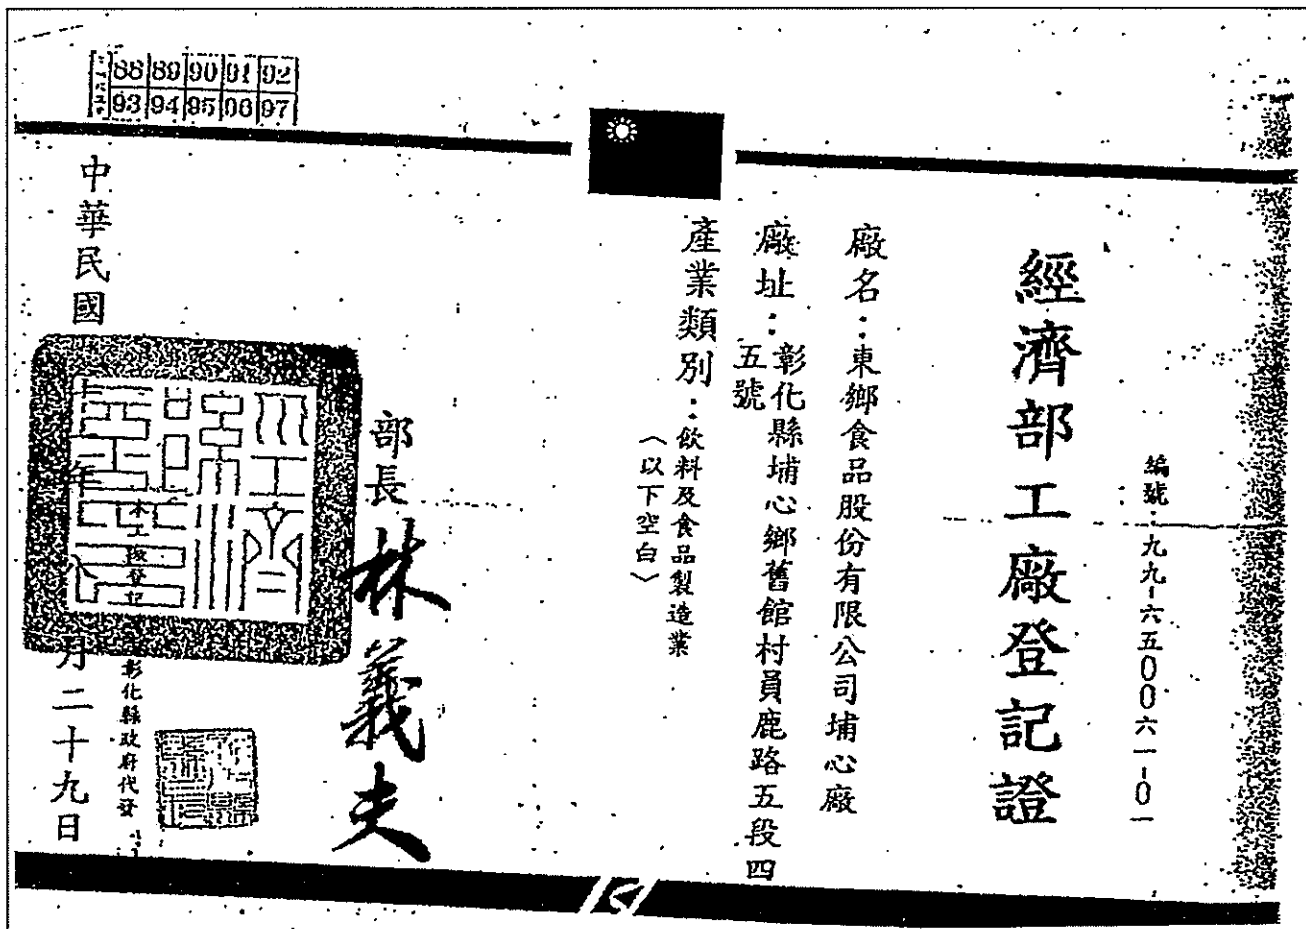 編號：九九-六五００六一-０一
經濟部工廠登記證
廠名：東鄉食品股份有限公司埔心廠
廠址：彰化縣埔心鄉舊館村員鹿路五段四
五號
產業類別：飲料及食品製造業
〈以下空白〉
部長 林義夫
彰化縣政府代發
中華民國 年八月二十九日
88 89 90 91 92
93 94 95 96 97